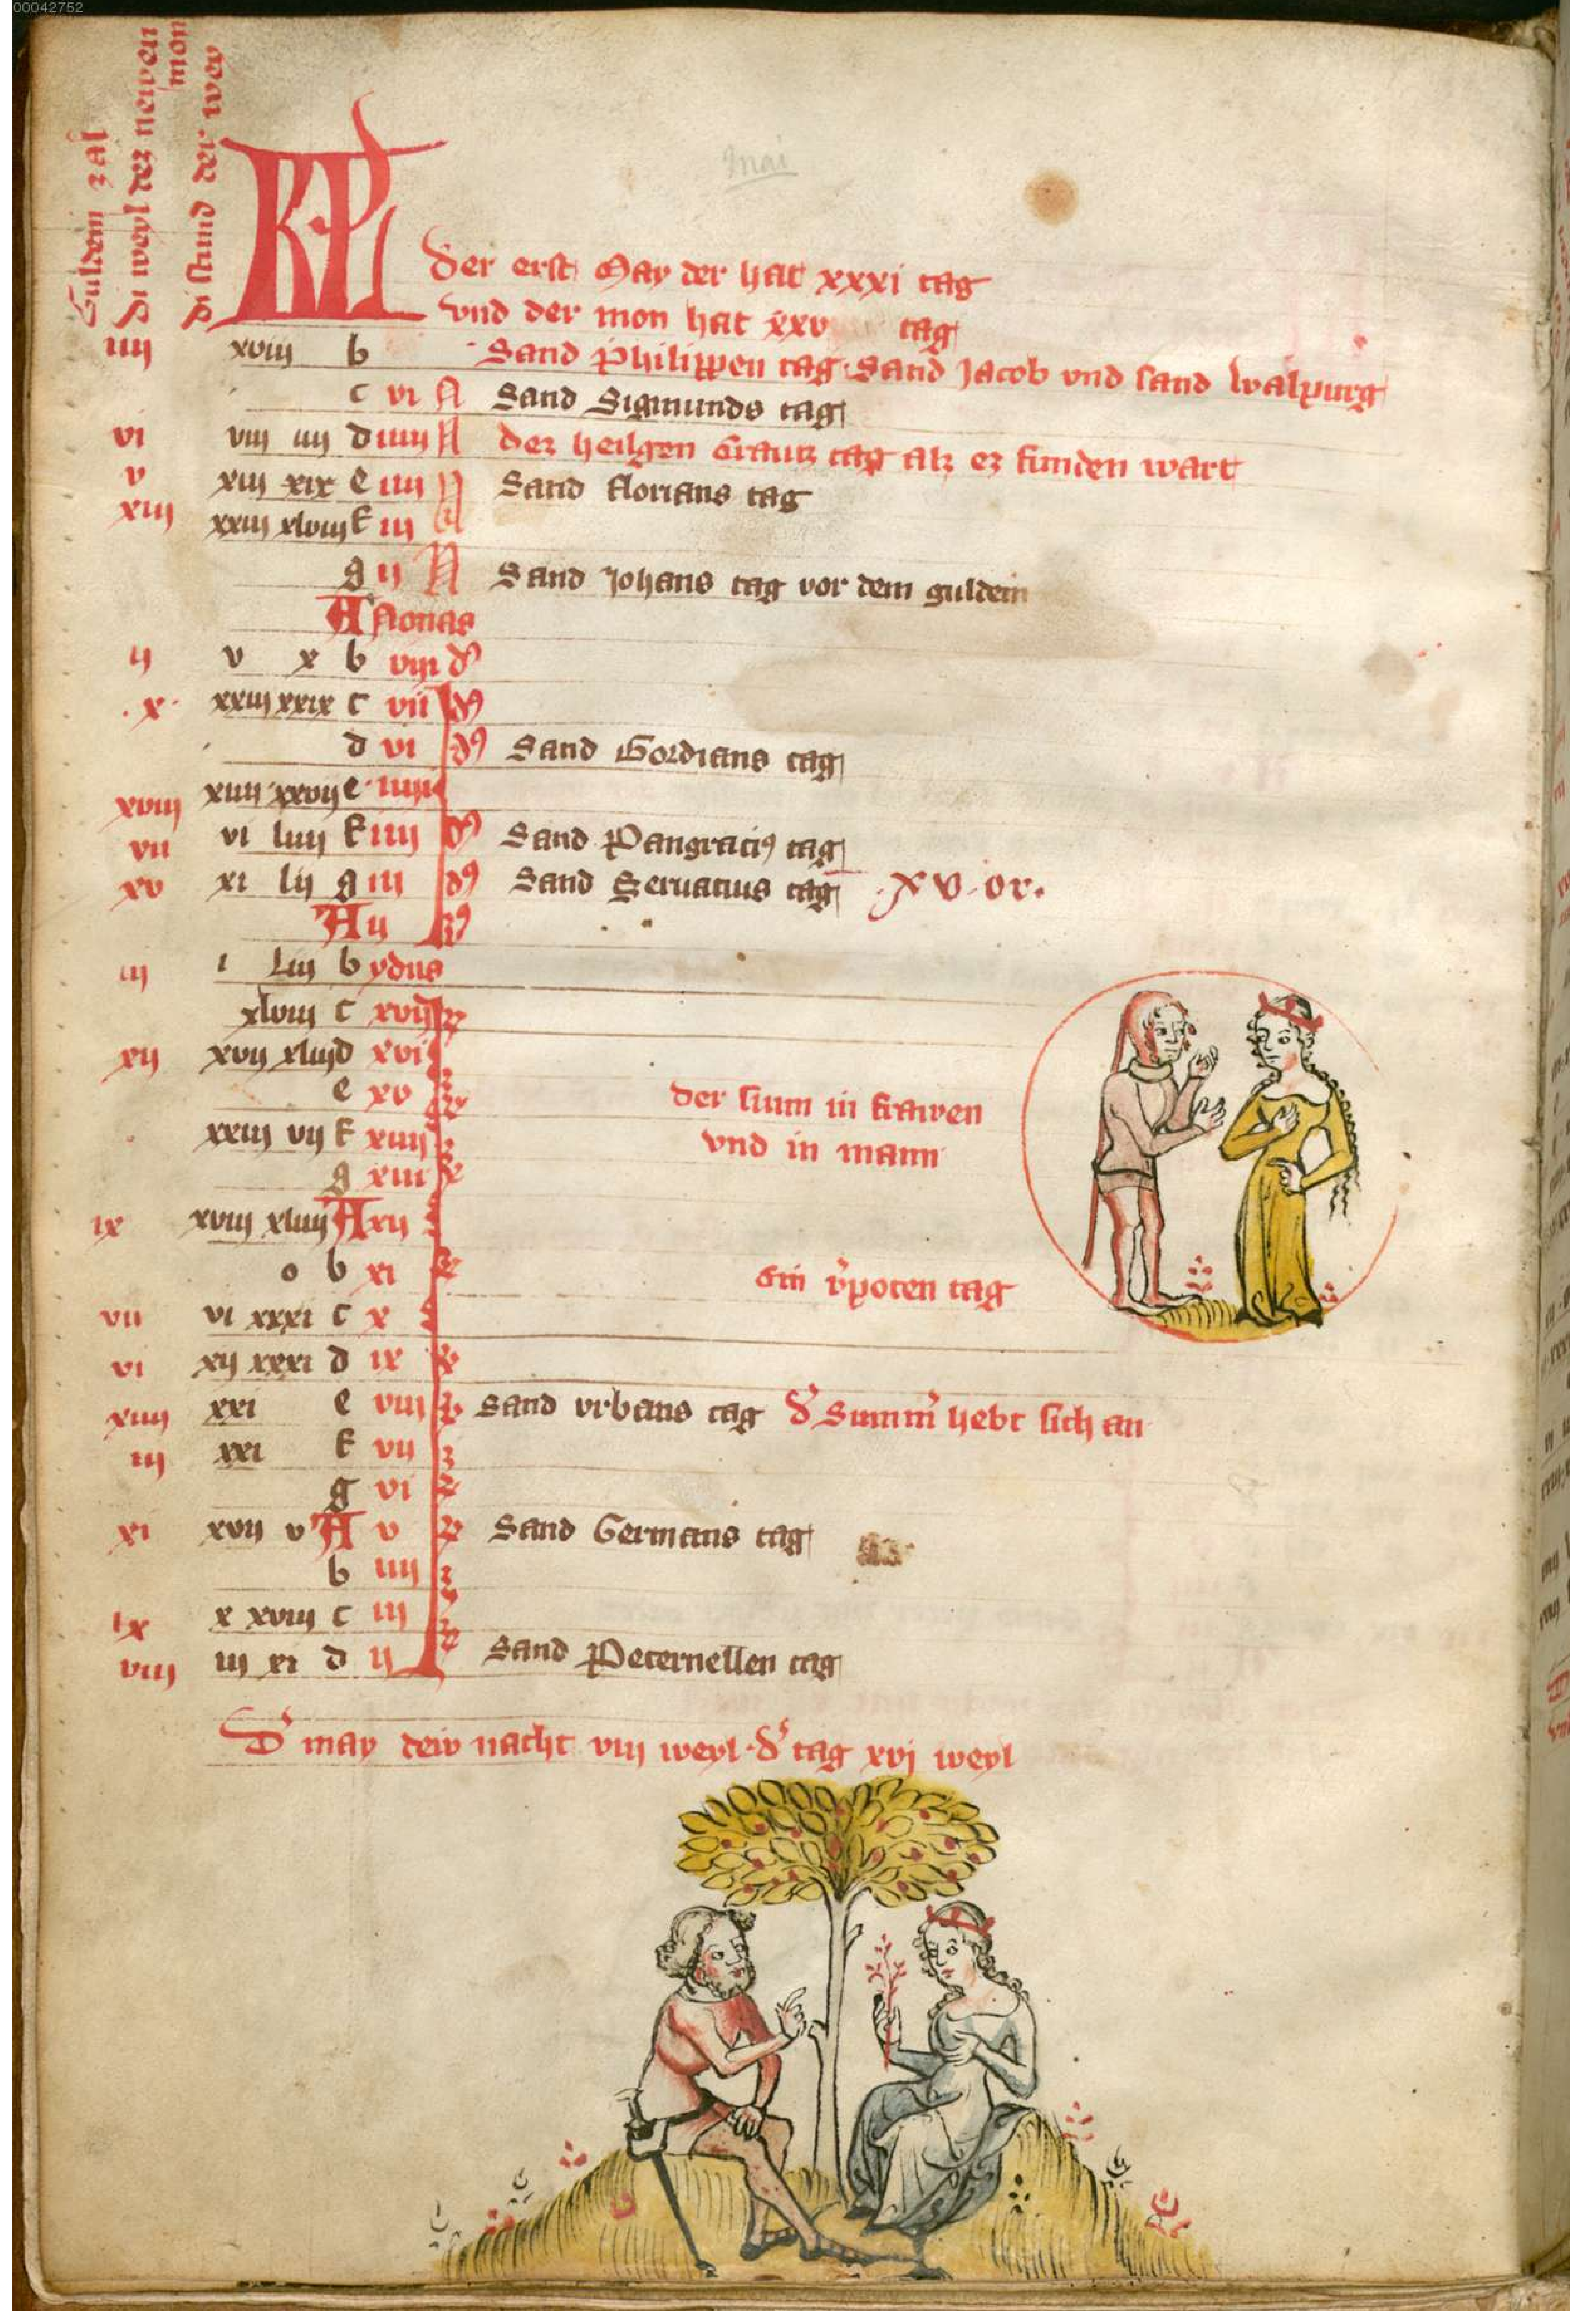 00042752
Guldein zal
Di weyl dez newen
mon
Di stund der wey
Mai
KL
Der erst May der hat xxxi tag
vnd der mon hat xxv tag
iiij xviij b Sand Philippen tag Sand Jacob vnd sand walpurg
c vi N Sand Sigmunds tag
vi viij iiij d iiiij N dez heilgen Crautz tag alz ez funden wart
v xiij xix e iiij N Sand Florians tag
xiij xxiij xlviij f iij N
g ij N Sand Johans tag vor dem guldein
A Nonas
ij v x b viij d9
.x. xxiij xxix c vii d9
d vi d9 Sand Gordians tag
xviij xiiij xxvij e iiiij
vii vi liiij f iiij d9 Sand Pangraci9 tag
xv xi lij g iij d9 Sand Seruatius tag .xv.or.
A ij d9
iij i liij b ydus
xlviij c xvij
xij xvij xliij d xvi
e xv der sium in frawen
xxiij vij f xiiij vnd in mann
g xiij
ix xviij xliiij A xij
o b xi Ein v̉poten tag
vii vi xxxi c x
vi xij xxxi d ix
xiiij xxi e viij Sand vrbans tag d̉ Sum̅m̉ hebt sich an
iij xxi f vij
g vi
xi xvij v A v Sand Germans tag
b iiij
ix x xviij c iij
viij iij xi d ij Sand Peternellen tag
D̉ may dew nacht viij weyl. d̉ tag xvj weyl